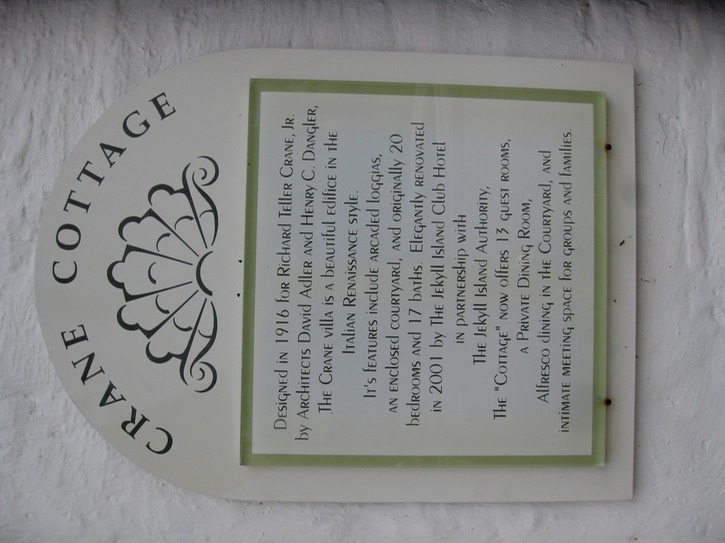 CRANE COTTAGE
Designed in 1916 for Richard Teller Crane, Jr.
by Architects David Adler and Henry C. Dangler,
The Crane villa is a beautiful edifice in the
Italian Renaissance style.
It's features include arcaded loggias,
an enclosed courtyard, and originally 20
bedrooms and 17 baths. Elegantly renovated
in 2001 by The Jekyll Island Club Hotel
in partnership with
The Jekyll Island Authority,
The "Cottage" now offers 13 guest rooms,
a Private Dining Room,
Alfresco dining in the Courtyard, and
intimate meeting space for groups and families.